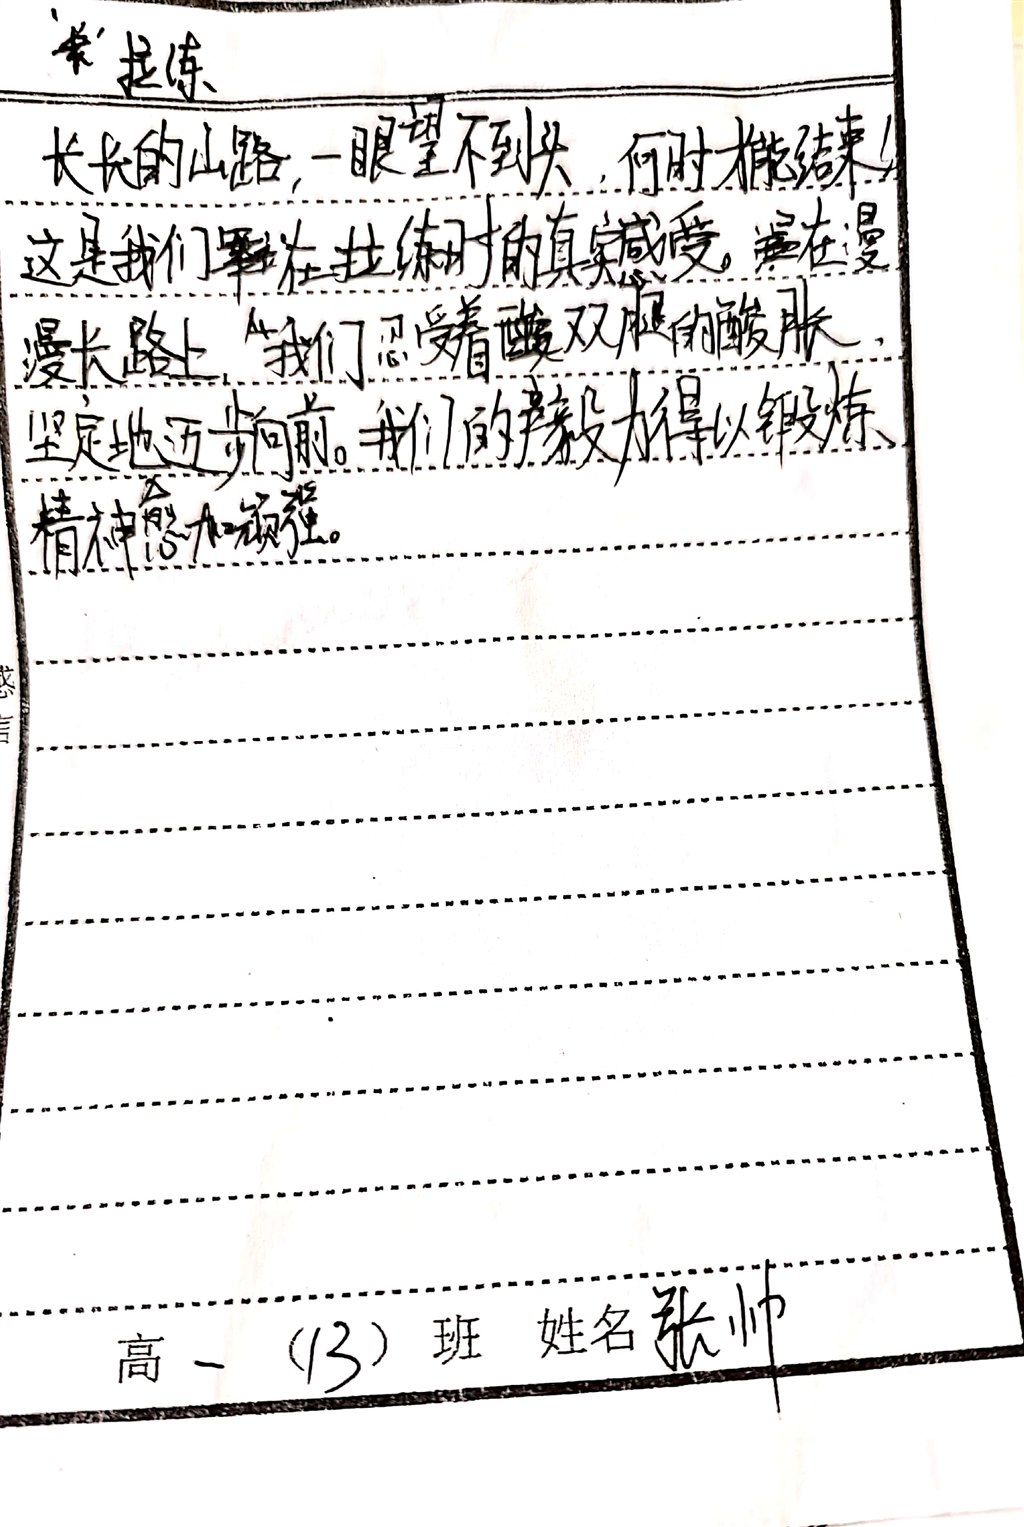 "长"拉练
长长的山路,一眼望不到头,何时才能结束!
这是我们在拉练时的真实感受。在漫
漫长路上,我们忍受着双腿的酸胀,
坚定地迈步向前。我们的毅力得以锻炼、
精神愈加顽强。
感
言
高一(13)班 姓名张帅